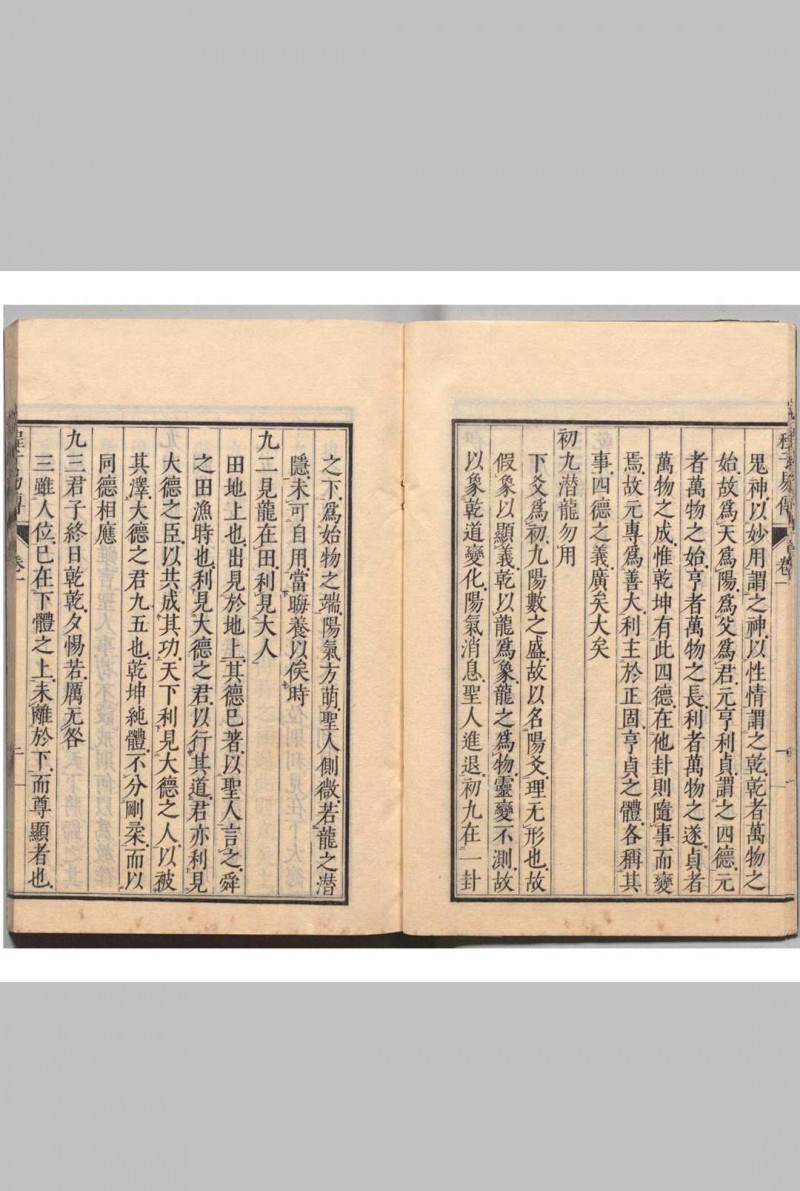 鬼神以妙用謂之神以性情謂之乾乾者萬物之
始故爲天爲陽爲父爲君元亨利貞謂之四德元
者萬物之始亨者萬物之長利者萬物之遂貞者
萬物之成惟乾坤有此四德在他卦則隨事而變
焉故元專爲善大利主於正固亨貞之體各稱其
事四德之義廣矣大矣
初九潛龍勿用
下爻爲初九陽數之盛故以名陽爻理无形也故
假象以顯義乾以龍爲象龍之爲物靈變不測故
以象乾道變化陽氣消息聖人進退初九在一卦
之下爲始物之端陽氣方萌聖人側微若龍之潛
隱未可自用當晦養以俟時
九二見龍在田利見大人
田地上也出見於地上其德已著以聖人言之舜
之田漁時也利見大德之君以行其道君亦利見
大德之臣以共成其功天下利見大德之人以被
其澤大德之君九五也乾坤純體不分剛柔而以
同德相應
九三君子終日乾乾夕惕若厲无咎
三雖人位已在下體之上未離於下而尊顯者也
程子易傳 卷一